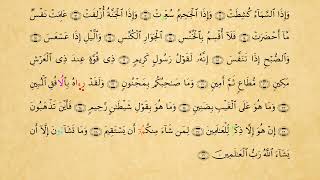 وَإِذَا السَّمَاءُ كُشِطَتْ ۝ وَإِذَا الْجَحِيمُ سُعِّرَتْ ۝ وَإِذَا الْجَنَّةُ أُزْلِفَتْ ۝ عَلِمَتْ نَفْسٌ
مَّا أَحْضَرَتْ ۝ فَلَا أُقْسِمُ بِالْخُنَّسِ ۝ الْجَوَارِ الْكُنَّسِ ۝ وَاللَّيْلِ إِذَا عَسْعَسَ ۝
وَالصُّبْحِ إِذَا تَنَفَّسَ ۝ إِنَّهُ لَقَوْلُ رَسُولٍ كَرِيمٍ ۝ ذِي قُوَّةٍ عِندَ ذِي الْعَرْشِ
مَكِينٍ ۝ مُّطَاعٍ ثَمَّ أَمِينٍ ۝ وَمَا صَاحِبُكُم بِمَجْنُونٍ ۝ وَلَقَدْ رَآهُ بِالْأُفُقِ الْمُبِينِ
۝ وَمَا هُوَ عَلَى الْغَيْبِ بِضَنِينٍ ۝ وَمَا هُوَ بِقَوْلِ شَيْطَانٍ رَّجِيمٍ ۝ فَأَيْنَ تَذْهَبُونَ
۝ إِنْ هُوَ إِلَّا ذِكْرٌ لِّلْعَالَمِينَ ۝ لِمَن شَاءَ مِنكُمْ أَن يَسْتَقِيمَ ۝ وَمَا تَشَاءُونَ إِلَّا أَن
يَشَاءَ اللَّهُ رَبُّ الْعَالَمِينَ ۝